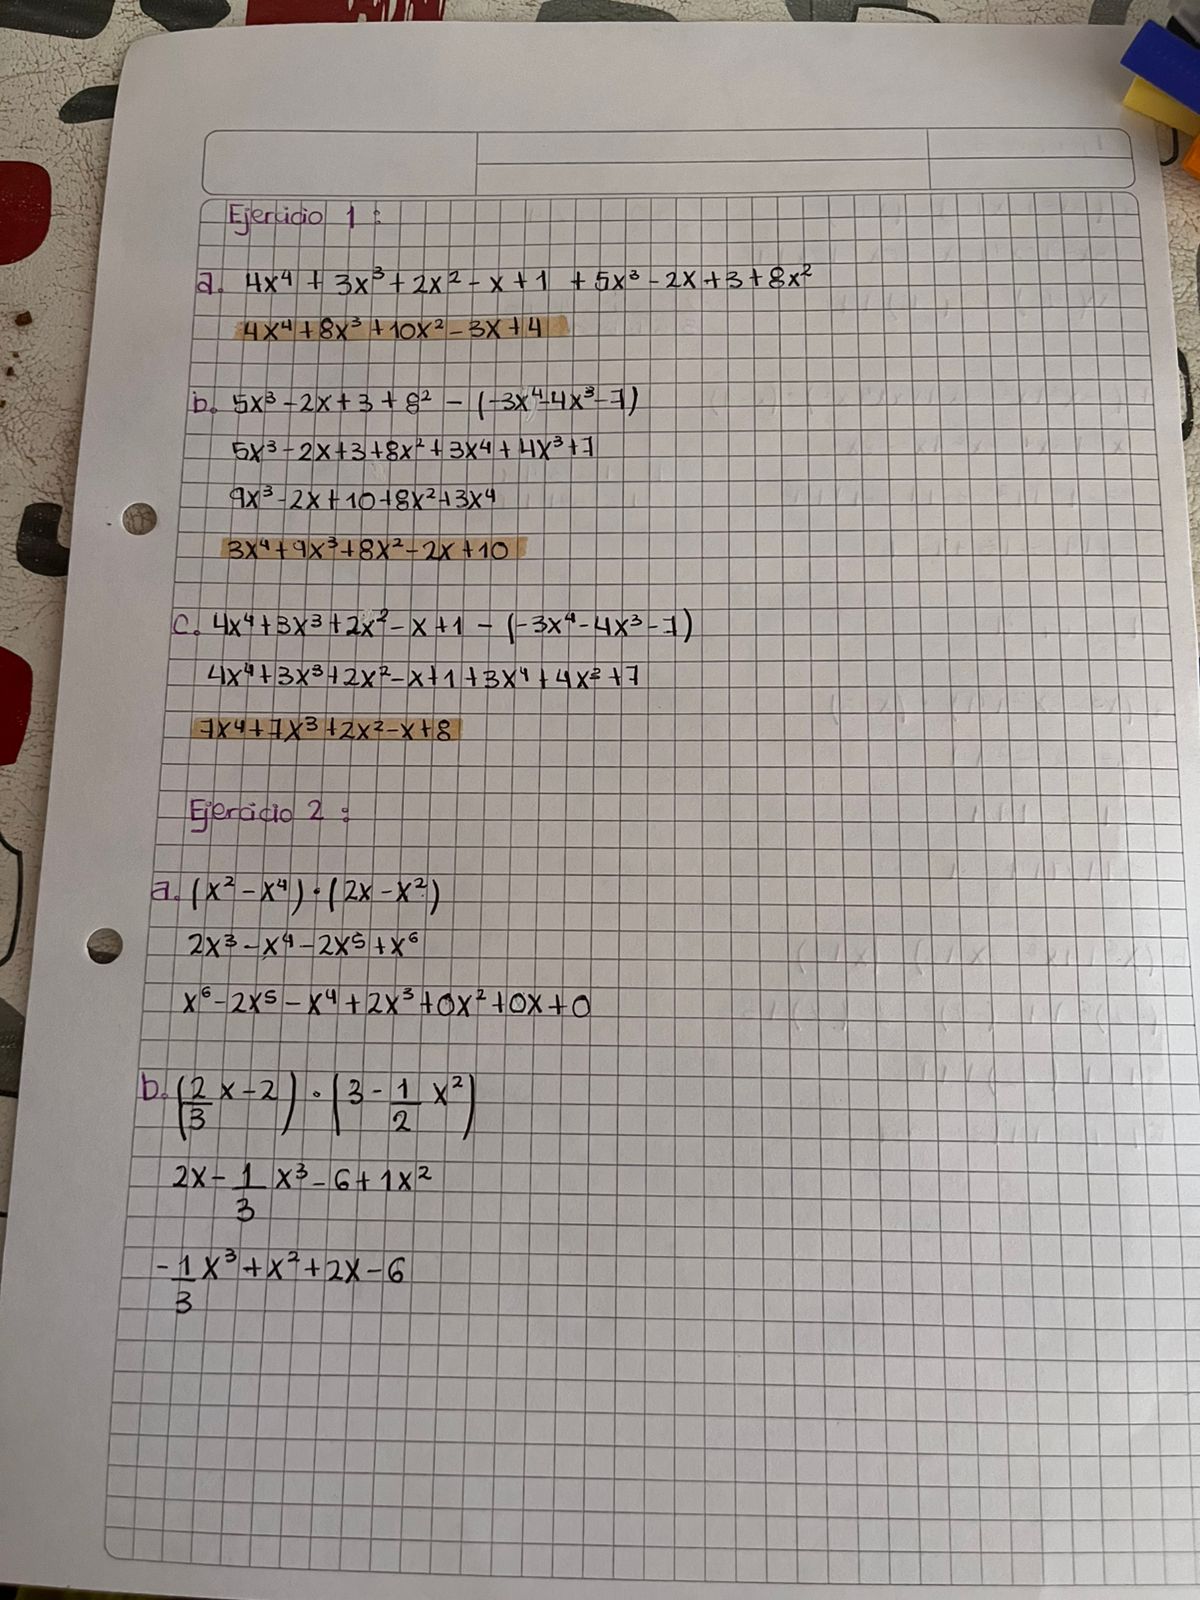 Ejercicio 1 :
a. 4x⁴ + 3x³ + 2x² - x + 1 + 5x³ - 2x + 3 + 8x²
4x⁴ + 8x³ + 10x² - 3x + 4
b. 5x³ - 2x + 3 + 8² - (-3x⁴ - 4x³ - 7)
5x³ - 2x + 3 + 8x² + 3x⁴ + 4x³ + 7
9x³ - 2x + 10 + 8x² + 3x⁴
3x⁴ + 9x³ + 8x² - 2x + 10
c. 4x⁴ + 3x³ + 2x² - x + 1 - (-3x⁴ - 4x³ - 7)
4x⁴ + 3x³ + 2x² - x + 1 + 3x⁴ + 4x³ + 7
7x⁴ + 7x³ + 2x² - x + 8
Ejercicio 2 :
a. (x² - x⁴) · (2x - x²)
2x³ - x⁴ - 2x⁵ + x⁶
x⁶ - 2x⁵ - x⁴ + 2x³ + 0x² + 0x + 0
b. (2/3 x - 2) · (3 - 1/2 x²)
2x - 1/3 x³ - 6 + 1x²
- 1/3 x³ + x² + 2x - 6